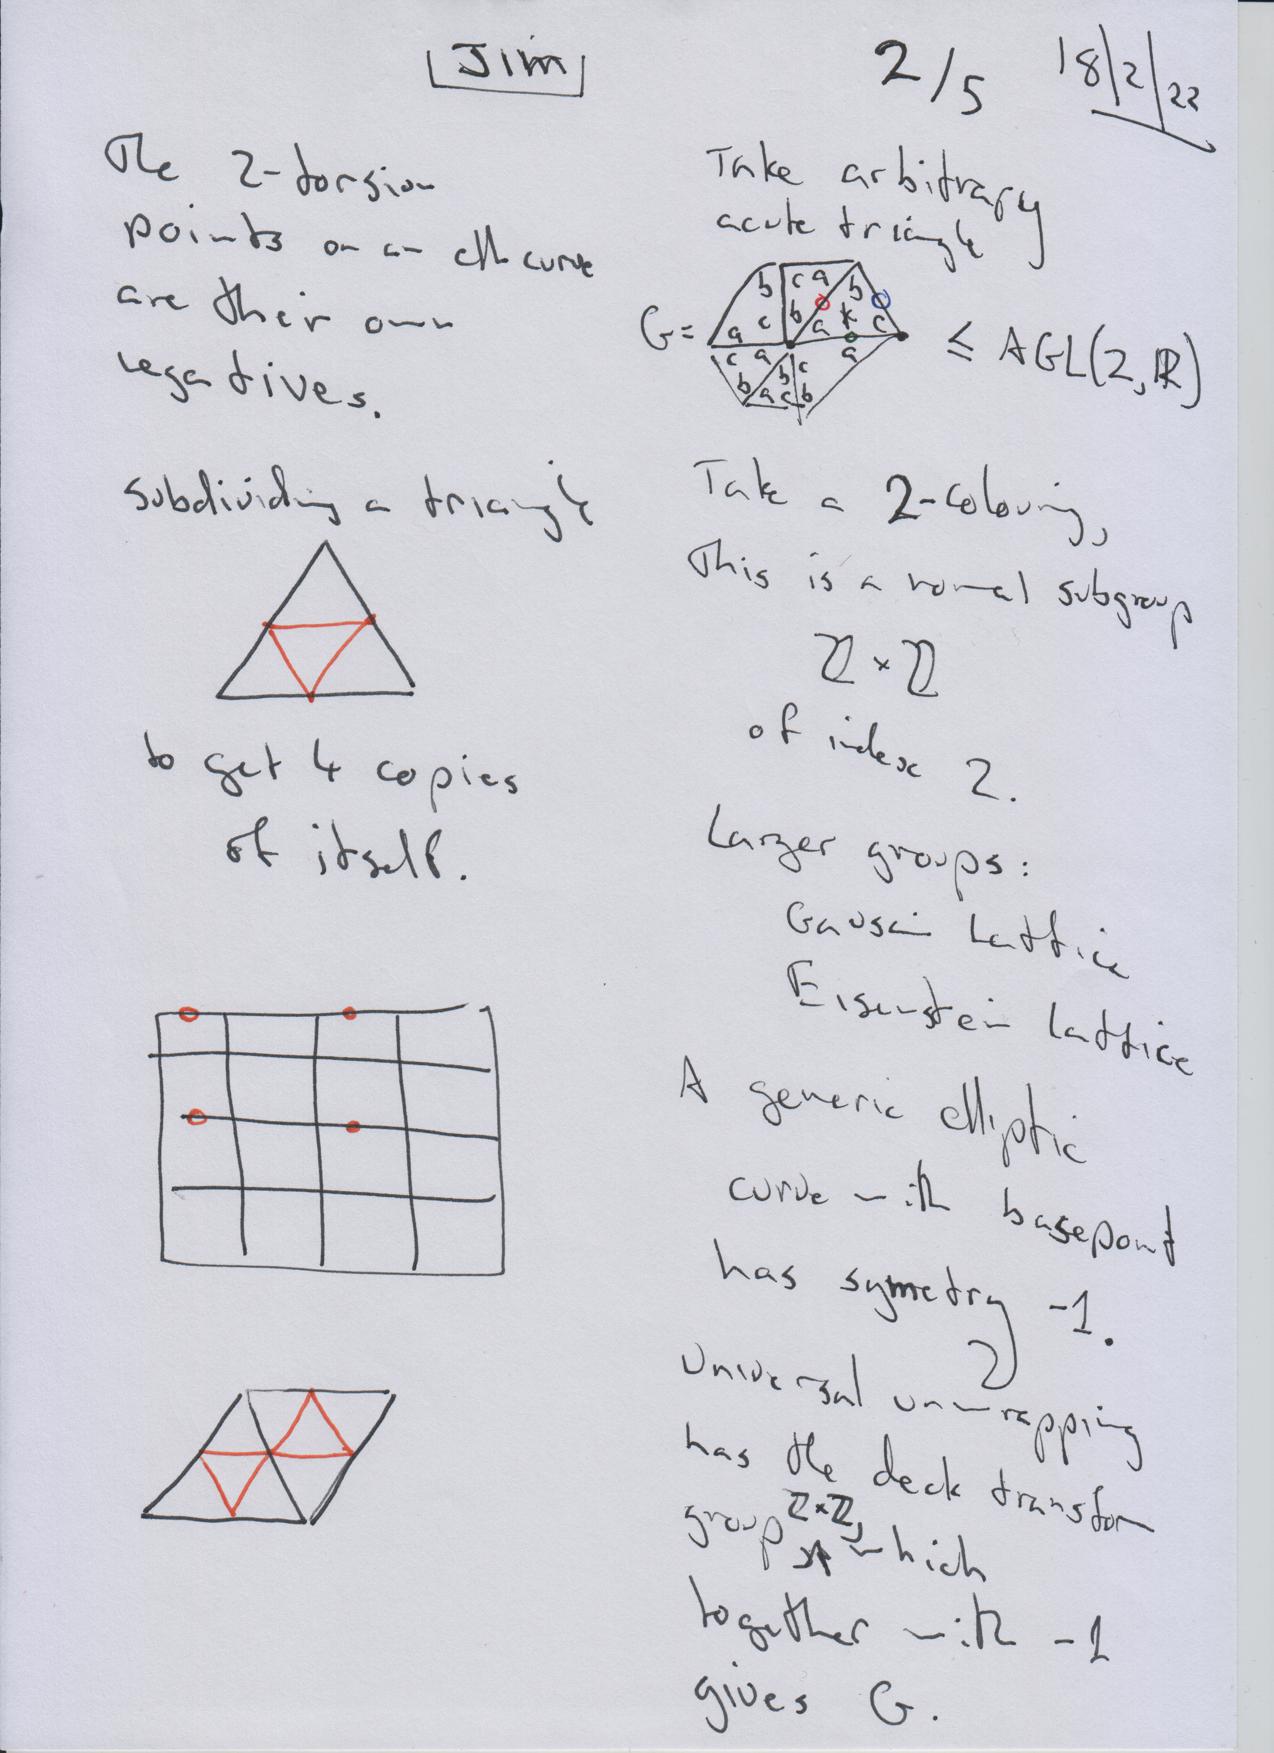 Jim
2/5
18/2/22
The 2-torsion
points on an ell curve
are their own
negatives.
Subdividing a triangle
to get 4 copies
of itself.
Take arbitrary
acute triangle
G =
b c a b
a c b a * c
c a b c a
b a c b
≤ AGL(2, ℝ)
Take a 2-colouring,
This is a normal subgroup
ℤ × ℤ
of index 2.
Larger groups:
Gaussian Lattice
Eisenstein Lattice
A generic elliptic
curve with basepoint
has symetry -1.
Universal unwrapping
has the deck transform
group ℤ×ℤ, which
together with -1
gives G.